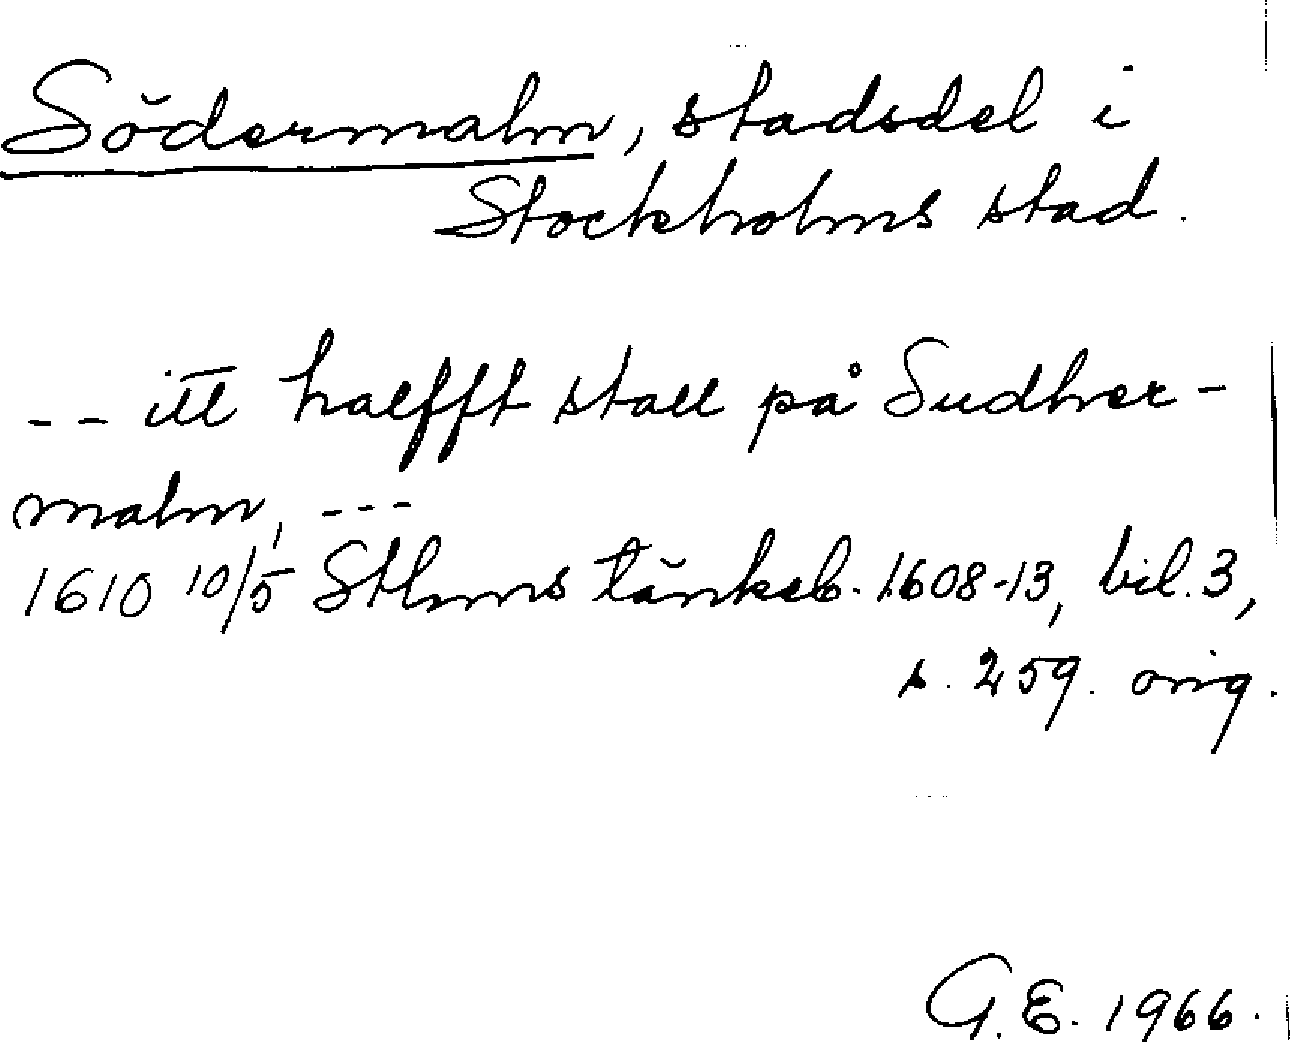 Södermalm, stadsdel i
Stockholms stad.
-- itt halfft stall på Sudher-
malm, ---
1610 10/5 Sthms tänkeb. 1608-13, bil. 3,
s. 259. orig.
G.E. 1966.